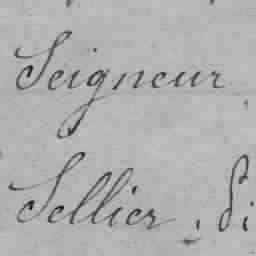 Seigneur
Sellier. Si